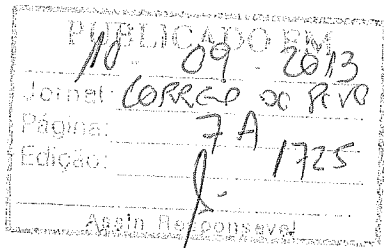 PUBLICADO EM
10 - 09 - 2013
Jornal: CORREIO DO POVO
Página: 7A
Edição: 1725
Assin Responsavel